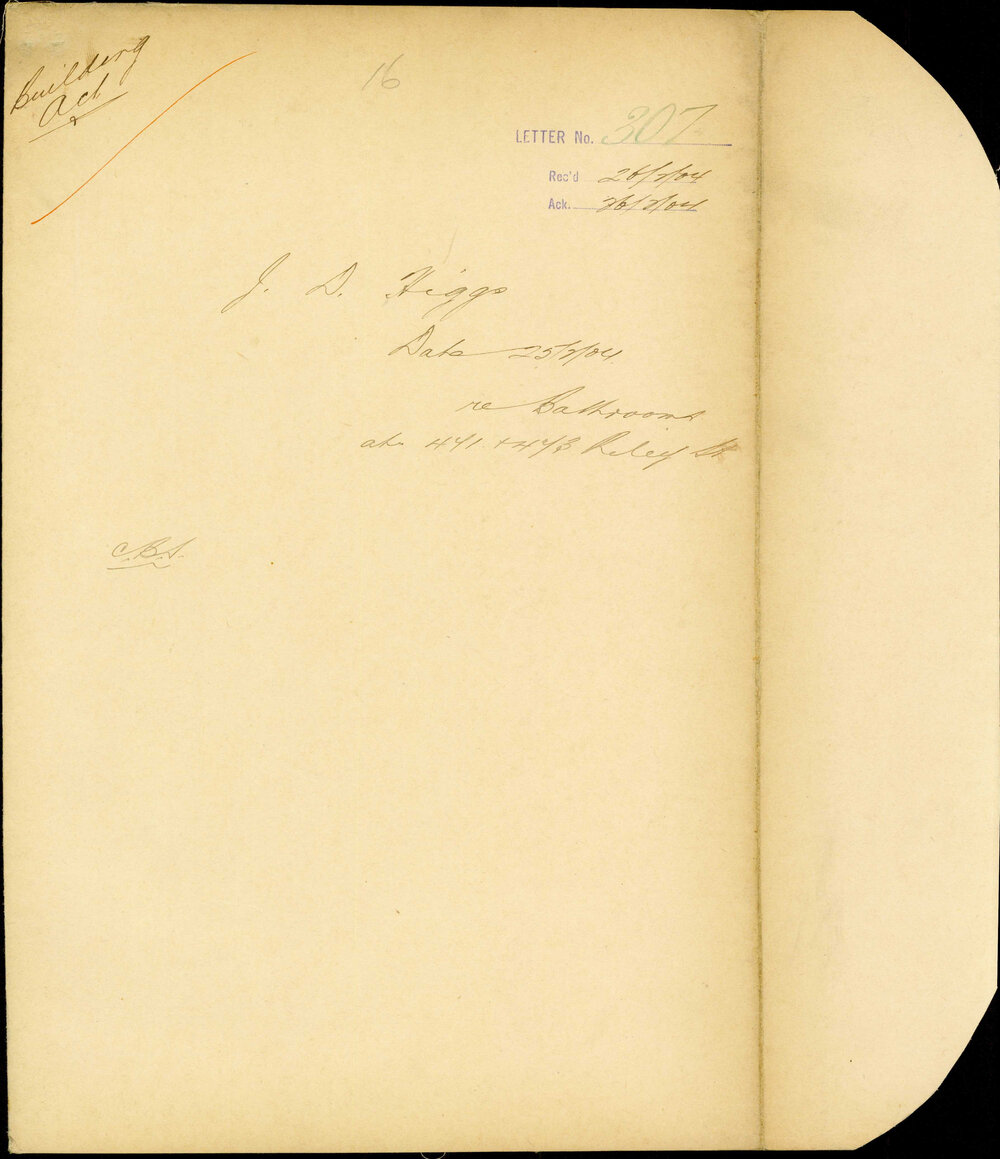 Building
Act
16
LETTER No. 307
Rec'd 26/2/04
Ack. 26/2/04
J. D. Higgs
Date 25/2/04
re Bathrooms
at 471 & 473 Riley St
C.B.S.